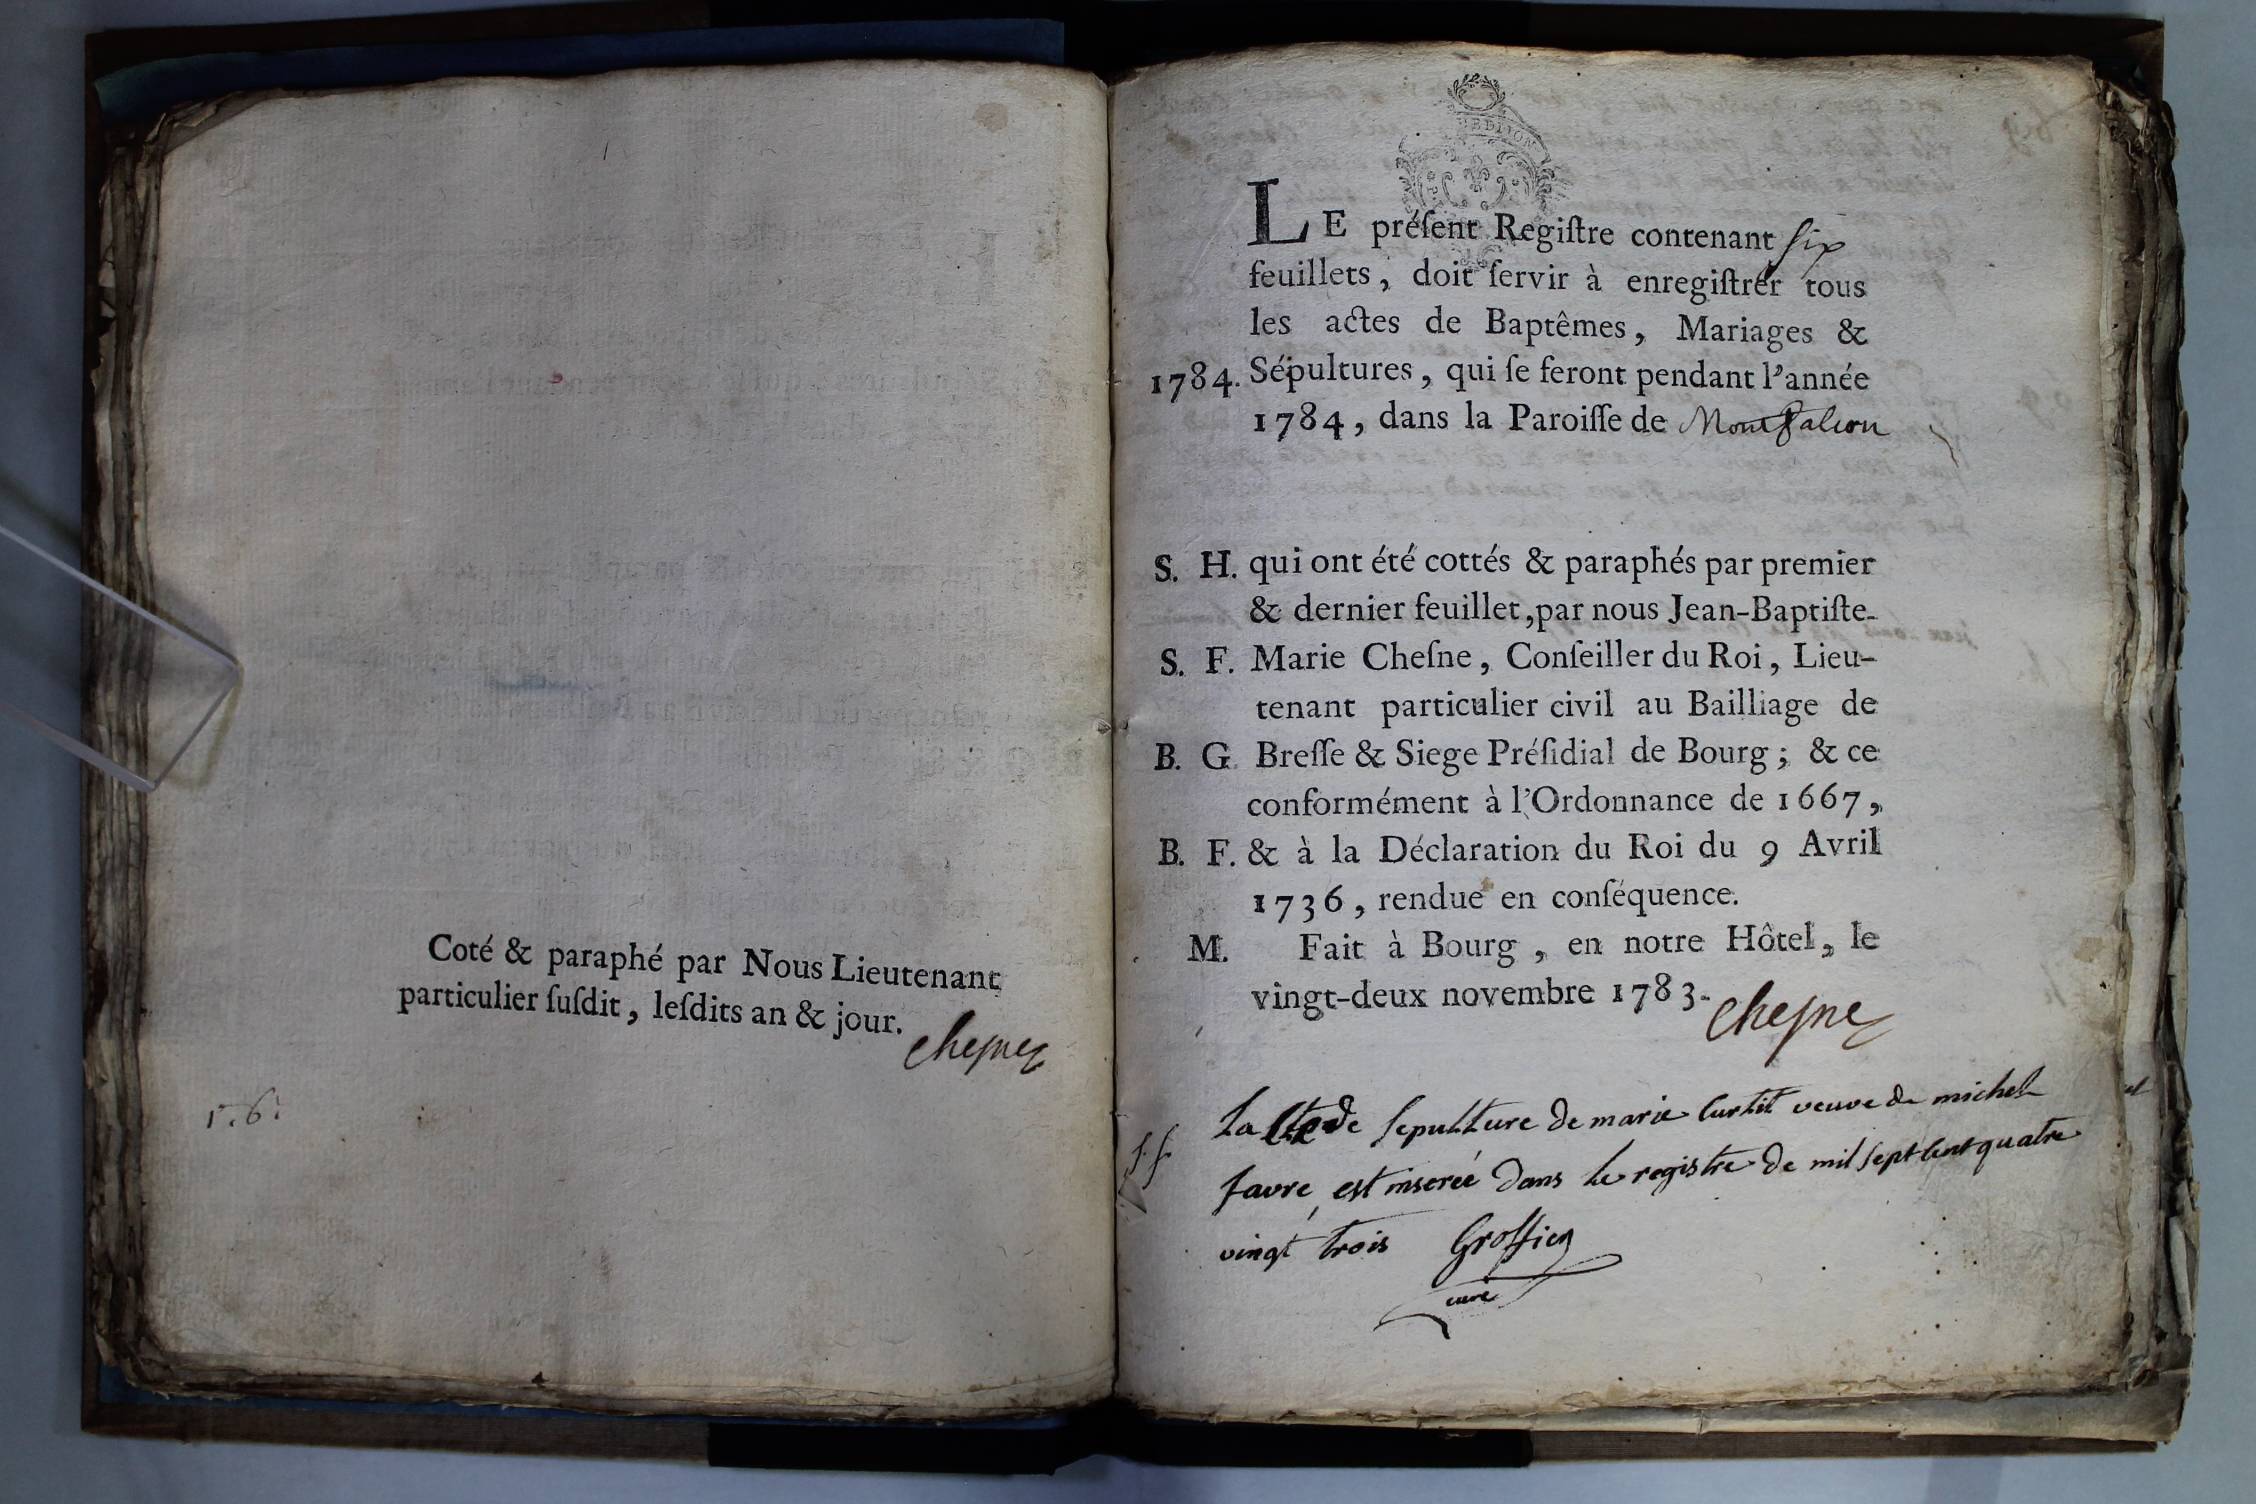 Coté & paraphé par Nous Lieutenant
particulier ſuſdit, leſdits an & jour.
Cheſne
LE préſent Regiſtre contenant ſix
feuillets, doit ſervir à enregiſtrer tous
les actes de Baptêmes, Mariages &
1784. Sépultures, qui ſe feront pendant l'année
1784, dans la Paroiſſe de Montfalcon
S. H. qui ont été cottés & paraphés par premier
& dernier feuillet, par nous Jean-Baptiſte-
S. F. Marie Cheſne, Conſeiller du Roi, Lieu-
tenant particulier civil au Bailliage de
B. G. Breſſe & Siege Préſidial de Bourg; & ce
conformément à l'Ordonnance de 1667,
B. F. & à la Déclaration du Roi du 9 Avril
1736, rendue en conſéquence.
M. Fait à Bourg, en notre Hôtel, le
vingt-deux novembre 1783.
Cheſne
s.f. La de sepulture de marie Curtil veuve de michel
favre est inserée dans le registre de mil sept cent quatre
vingt trois Groffier
curé